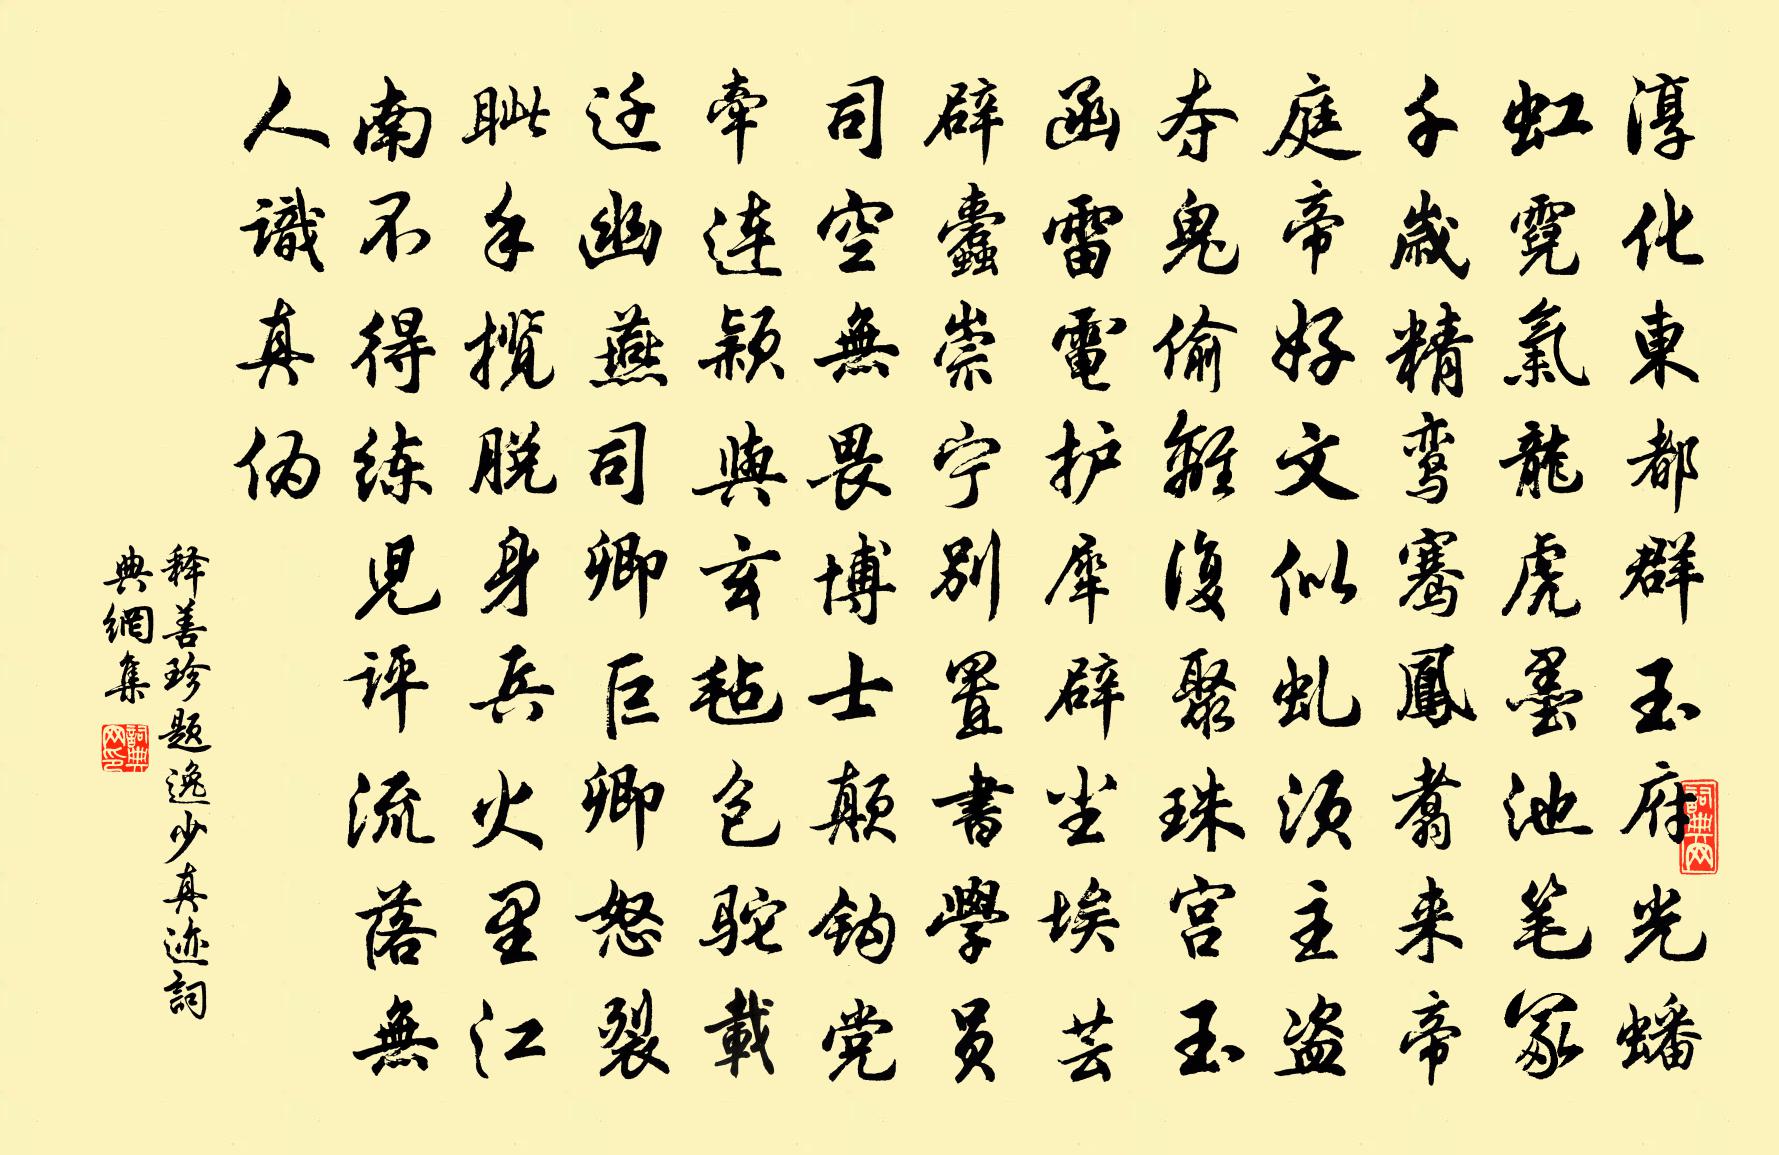 淳化東都群玉府光蟠
虹霓氣龍虎墨池笔冢
千歲精鸾骞鳳翥来帝
庭帝好文似虬须主盗
夺鬼偷離復聚珠宫玉
函雷電护犀辟尘埃芸
辟蠹崇宁別置書學員
司空無畏博士顛鈎党
牵連颖與玄毡包駝載
迁幽燕司卿巨卿怒裂
眦手攬脱身兵火里江
南不得练児評流落無
人識真伪
释善珍题逸少真迹詞
典網集
詞典网
詞典网印